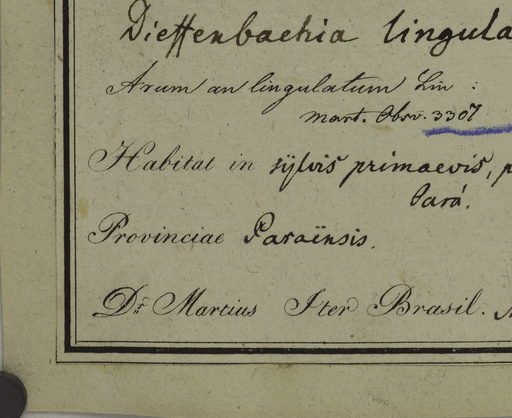 Dieffenbachia lingula
Arum an lingulatum Lin :
Mart. Obsv. 3307
Habitat in sÿlvis primaevis, p
Pará.
Provinciae Paraënsis.
Dr. Martius Iter Brasil.